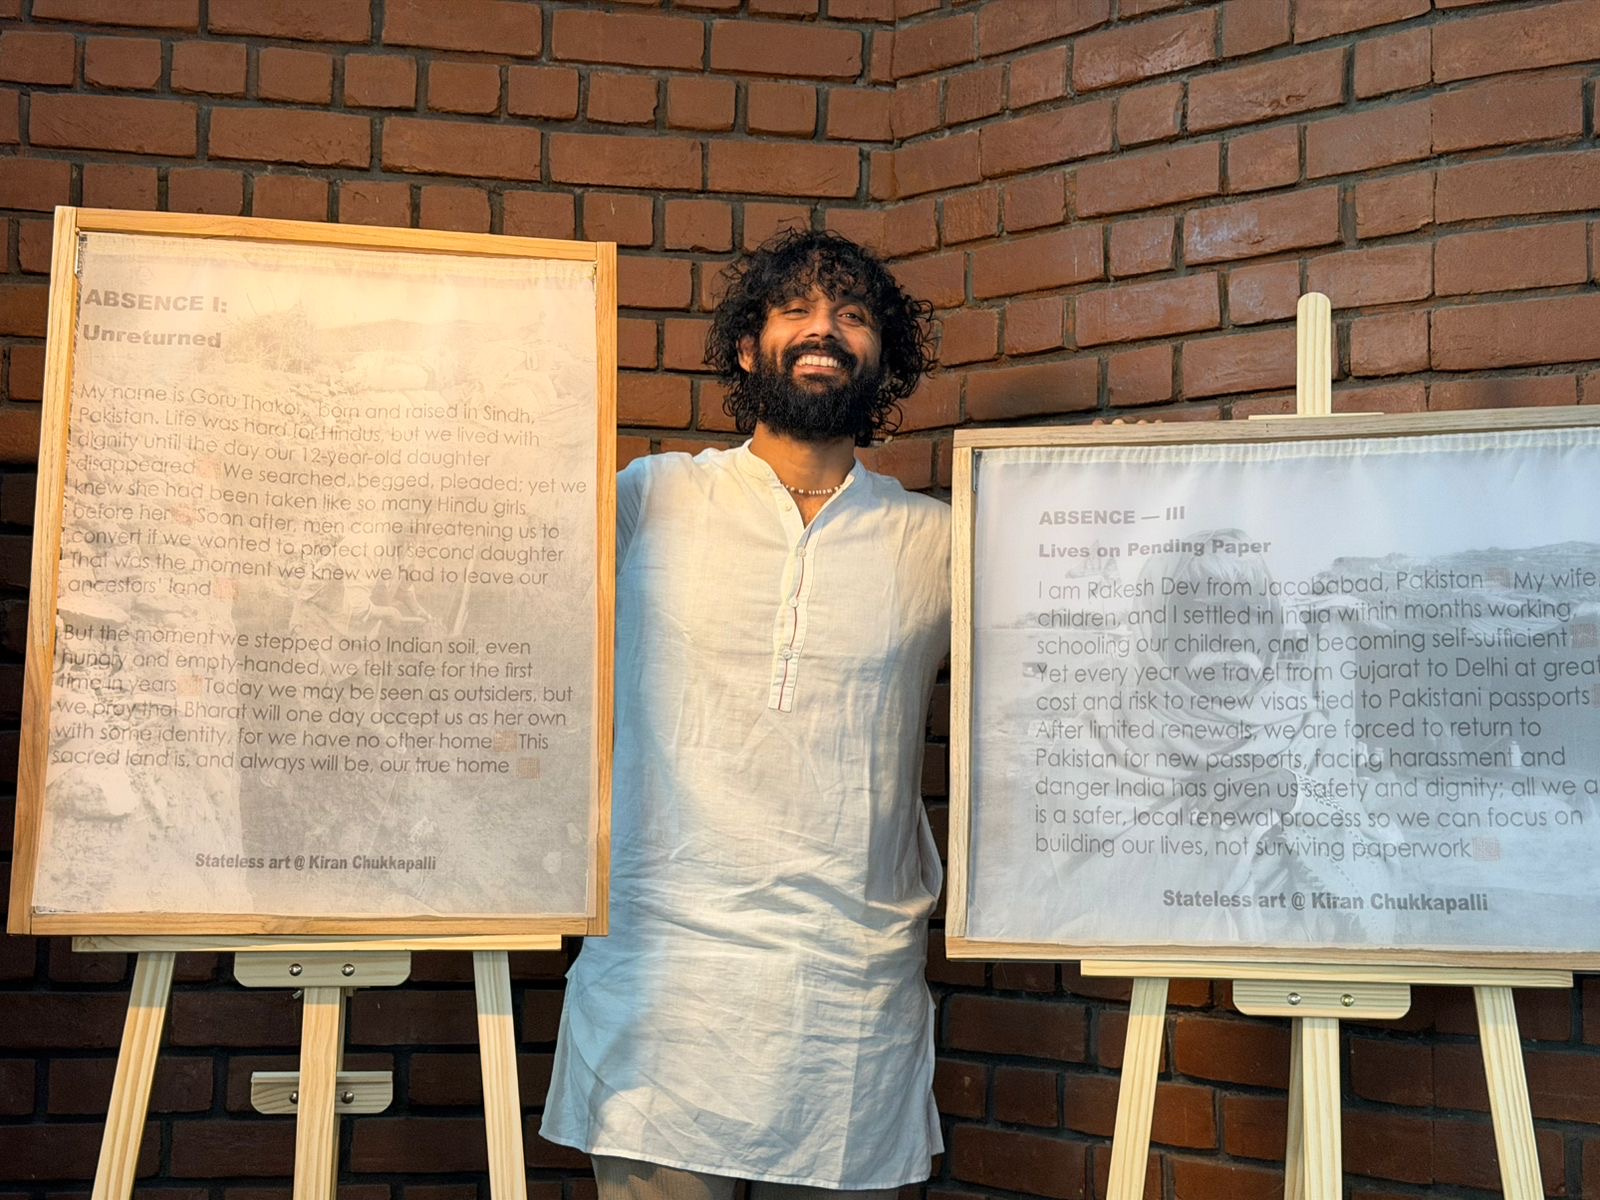 ABSENCE I:
Unreturned
My name is Goru Thakor, born and raised in Sindh,
Pakistan. Life was hard for Hindus, but we lived with
dignity until the day our 12-year-old daughter
disappeared We searched, begged, pleaded; yet we
knew she had been taken like so many Hindu girls
before her Soon after, men came threatening us to
convert if we wanted to protect our second daughter
That was the moment we knew we had to leave our
ancestors' land
But the moment we stepped onto Indian soil, even
hungry and empty-handed, we felt safe for the first
time in years Today we may be seen as outsiders, but
we pray that Bharat will one day accept us as her own
with some identity, for we have no other home This
sacred land is, and always will be, our true home
Stateless art @ Kiran Chukkapalli
ABSENCE — III
Lives on Pending Paper
I am Rakesh Dev from Jacobabad, Pakistan My wife,
children, and I settled in India within months working,
schooling our children, and becoming self-sufficient
Yet every year we travel from Gujarat to Delhi at great
cost and risk to renew visas tied to Pakistani passports
After limited renewals, we are forced to return to
Pakistan for new passports, facing harassment and
danger India has given us safety and dignity; all we a
is a safer, local renewal process so we can focus on
building our lives, not surviving paperwork
Stateless art @ Kiran Chukkapalli